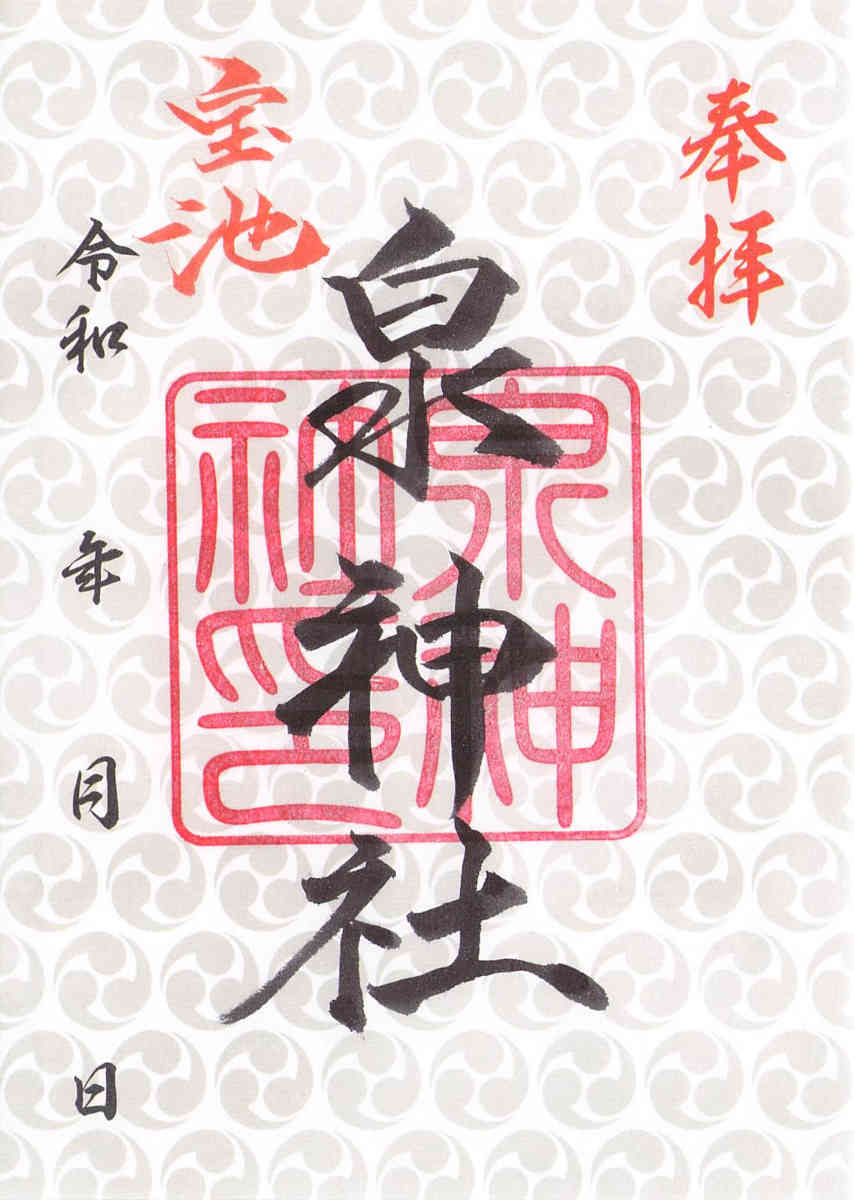 奉拝
泉神社
宝池
令和 年 月 日
泉神
神印